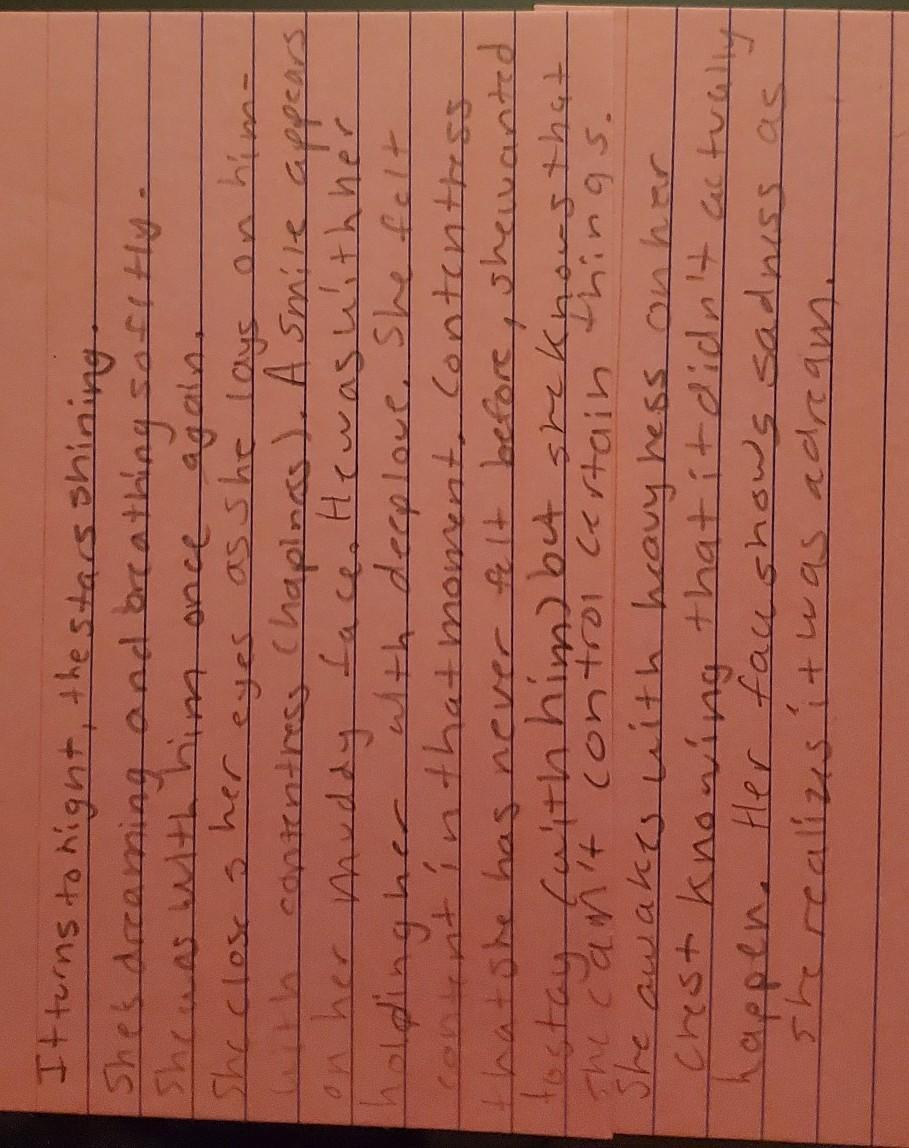 It turns to night, the stars shining.
She's dreaming and breathing softly.
She was with him once again.
She closes her eyes as she lays on him-
with contentness (hapiness). A smile appears
on her muddy face. He was with her
holding her with deep love. She felt
content in that moment. Contentness
that she has never felt before, she wanted
to stay (with him) but she knows that
she can't control certain things.
She awakes with heavyness on her
chest knowing that it didn't actually
happen. Her face shows sadness as
she realizes it was a dream.